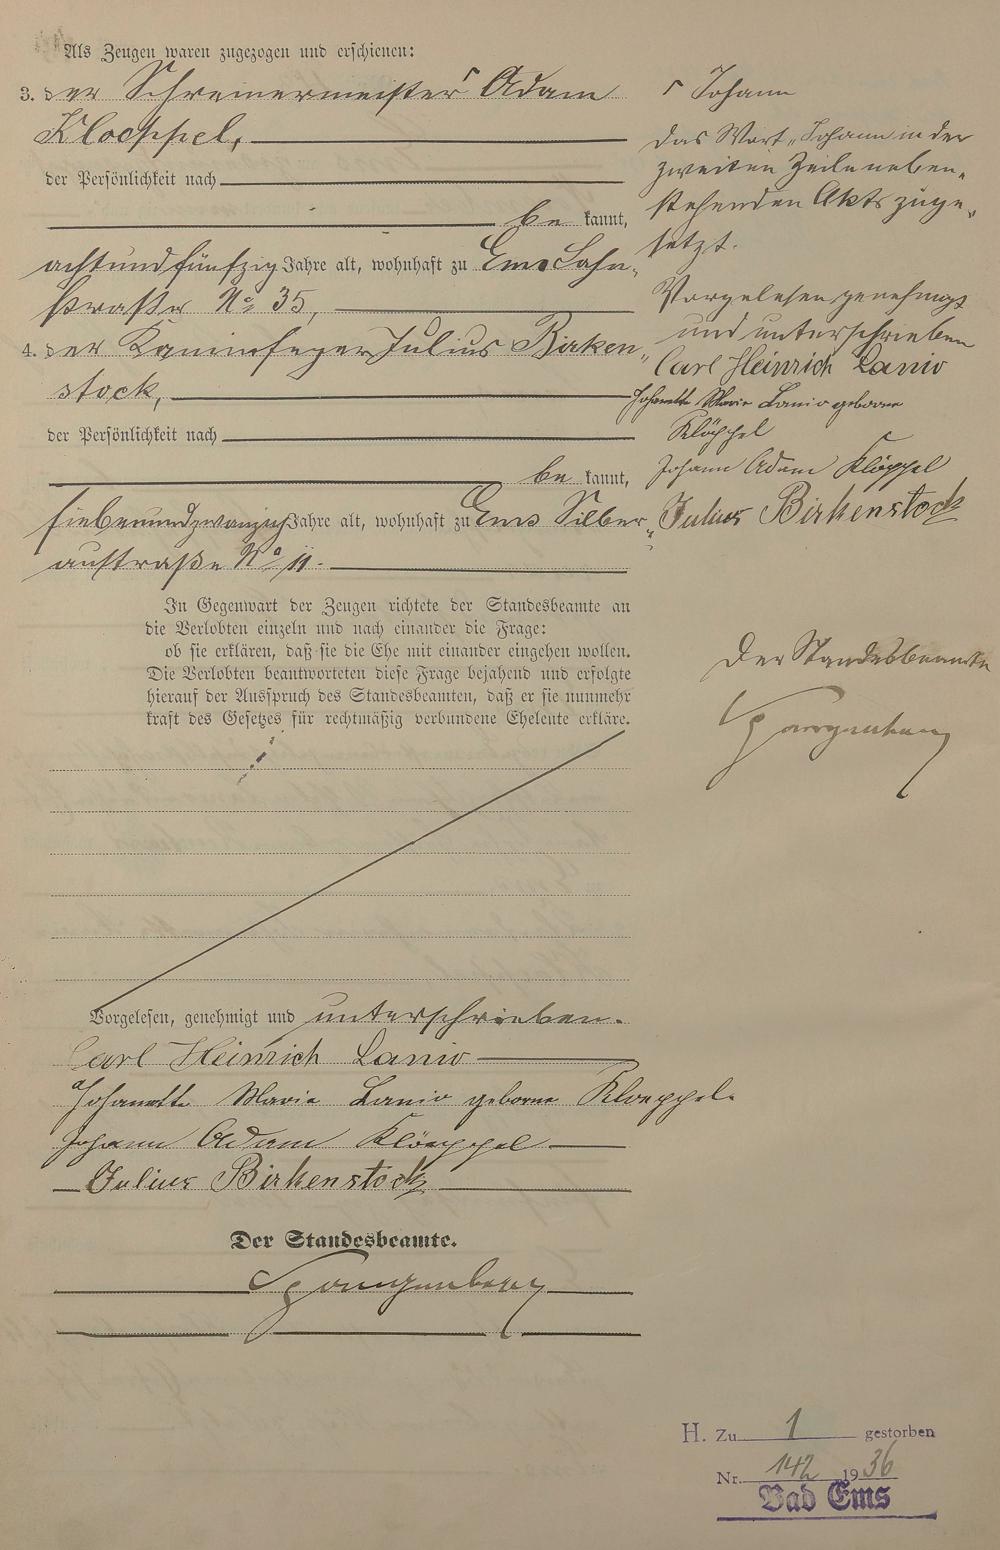 Als Zeugen waren zugezogen und erschienen:
3. der Schreinermeister ┌ Adam
Kloeppel,
der Persönlichkeit nach
be kannt,
achtundfünfzig Jahre alt, wohnhaft zu Ems Lahn-
straße No 35,
4. der Kaminfeger Julius Birken-
stock,
der Persönlichkeit nach
be kannt,
siebenundzwanzig Jahre alt, wohnhaft zu Ems Silber-
austraße No 11.
In Gegenwart der Zeugen richtete der Standesbeamte an
die Verlobten einzeln und nach einander die Frage:
ob sie erklären, daß sie die Ehe mit einander eingehen wollen.
Die Verlobten beantworteten diese Frage bejahend und erfolgte
hierauf der Ausspruch des Standesbeamten, daß er sie nunmehr
kraft des Gesetzes für rechtmäßig verbundene Eheleute erkläre.
Vorgelesen, genehmigt und unterschrieben.
Carl Heinrich Lanio
Johanette Maria Lanio geborne Kloeppel.
Johann Adam Klöeppel
Julius Birkenstock
Der Standesbeamte.
Spangenberg
┌ Johann
das Wort „Johann in der
zweiten Zeile neben-
stehenden Akts zuge-
setzt.
Vorgelesen genehmigt
und unterschrieben
Carl Heinrich Lanio
Johanette Maria Lanio geborne
Klöppel
Johann Adam Klöppel
Julius Birkenstock
Der Standesbeamte
Spangenberg
H. Zu 1 gestorben
Nr. 142 1936
Bad Ems